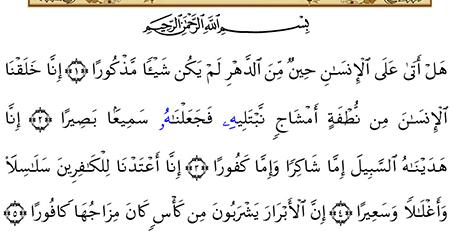 بِسْمِ ٱللَّهِ ٱلرَّحْمَٰنِ ٱلرَّحِيمِ
هَلْ أَتَىٰ عَلَى ٱلْإِنسَٰنِ حِينٌ مِّنَ ٱلدَّهْرِ لَمْ يَكُن شَيْـًٔا مَّذْكُورًا ﴿١﴾ إِنَّا خَلَقْنَا
ٱلْإِنسَٰنَ مِن نُّطْفَةٍ أَمْشَاجٍ نَّبْتَلِيهِ فَجَعَلْنَٰهُ سَمِيعًۢا بَصِيرًا ﴿٢﴾ إِنَّا
هَدَيْنَٰهُ ٱلسَّبِيلَ إِمَّا شَاكِرًا وَإِمَّا كَفُورًا ﴿٣﴾ إِنَّآ أَعْتَدْنَا لِلْكَٰفِرِينَ سَلَٰسِلَا۟
وَأَغْلَٰلًا وَسَعِيرًا ﴿٤﴾ إِنَّ ٱلْأَبْرَارَ يَشْرَبُونَ مِن كَأْسٍ كَانَ مِزَاجُهَا كَافُورًا ﴿٥﴾